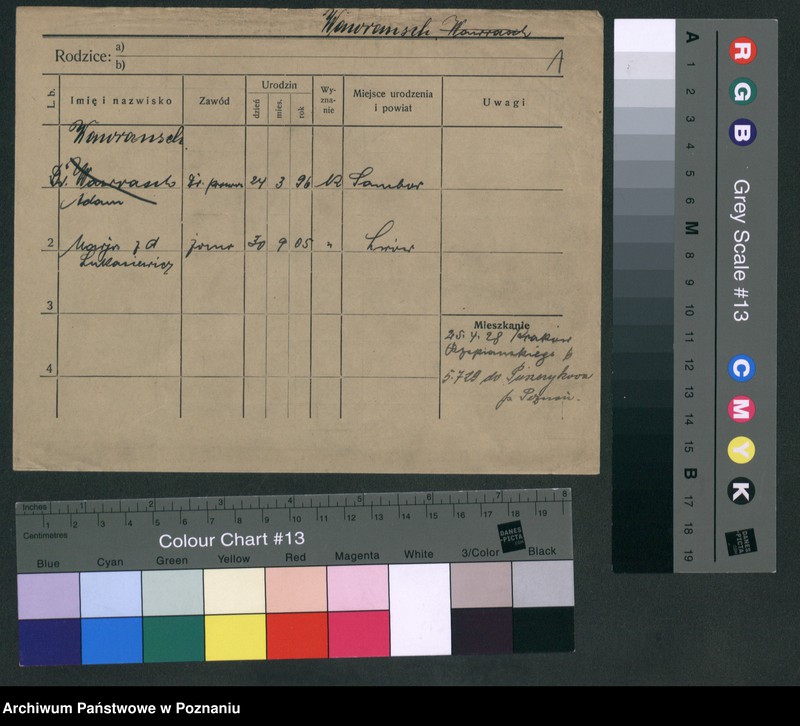 Wawrausch, Wawrasch
Rodzice: a)
b)
A
L. b.
Imię i nazwisko
Zawód
Urodzin
dzień
mies.
rok
Wy-
zna-
nie
Miejsce urodzenia
i powiat
Uwagi
Wawrausch
Dr. Wawrasch 24 3 96 Sambor
Adam
2 Maria z d żona 30 9 05 " Lwów
Łukasiewicz
3
4
Mieszkanie
25. 4. 28 Kraków
5.7 28 do
p. Poznań.
Inches 1 2 3 4 5 6 7 8
1 2 3 4 5 6 7 8 9 10 11 12 13 14 15 16 17 18 19
Centimetres
Colour Chart #13
DANES
PICTA
.COM
Blue Cyan Green Yellow Red Magenta White 3/Color Black
A 1 2 3 4 5 6 M 8 9 10 11 12 13 14 15 B 17 18 19
R G B
Grey Scale #13
C M Y K
DANES
PICTA
.COM
Archiwum Państwowe w Poznaniu